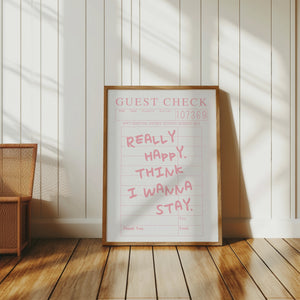 GUEST CHECK
107369
REALLY
HAPPY.
THINK
I WANNA
STAY.
Tax
Thank You
Total